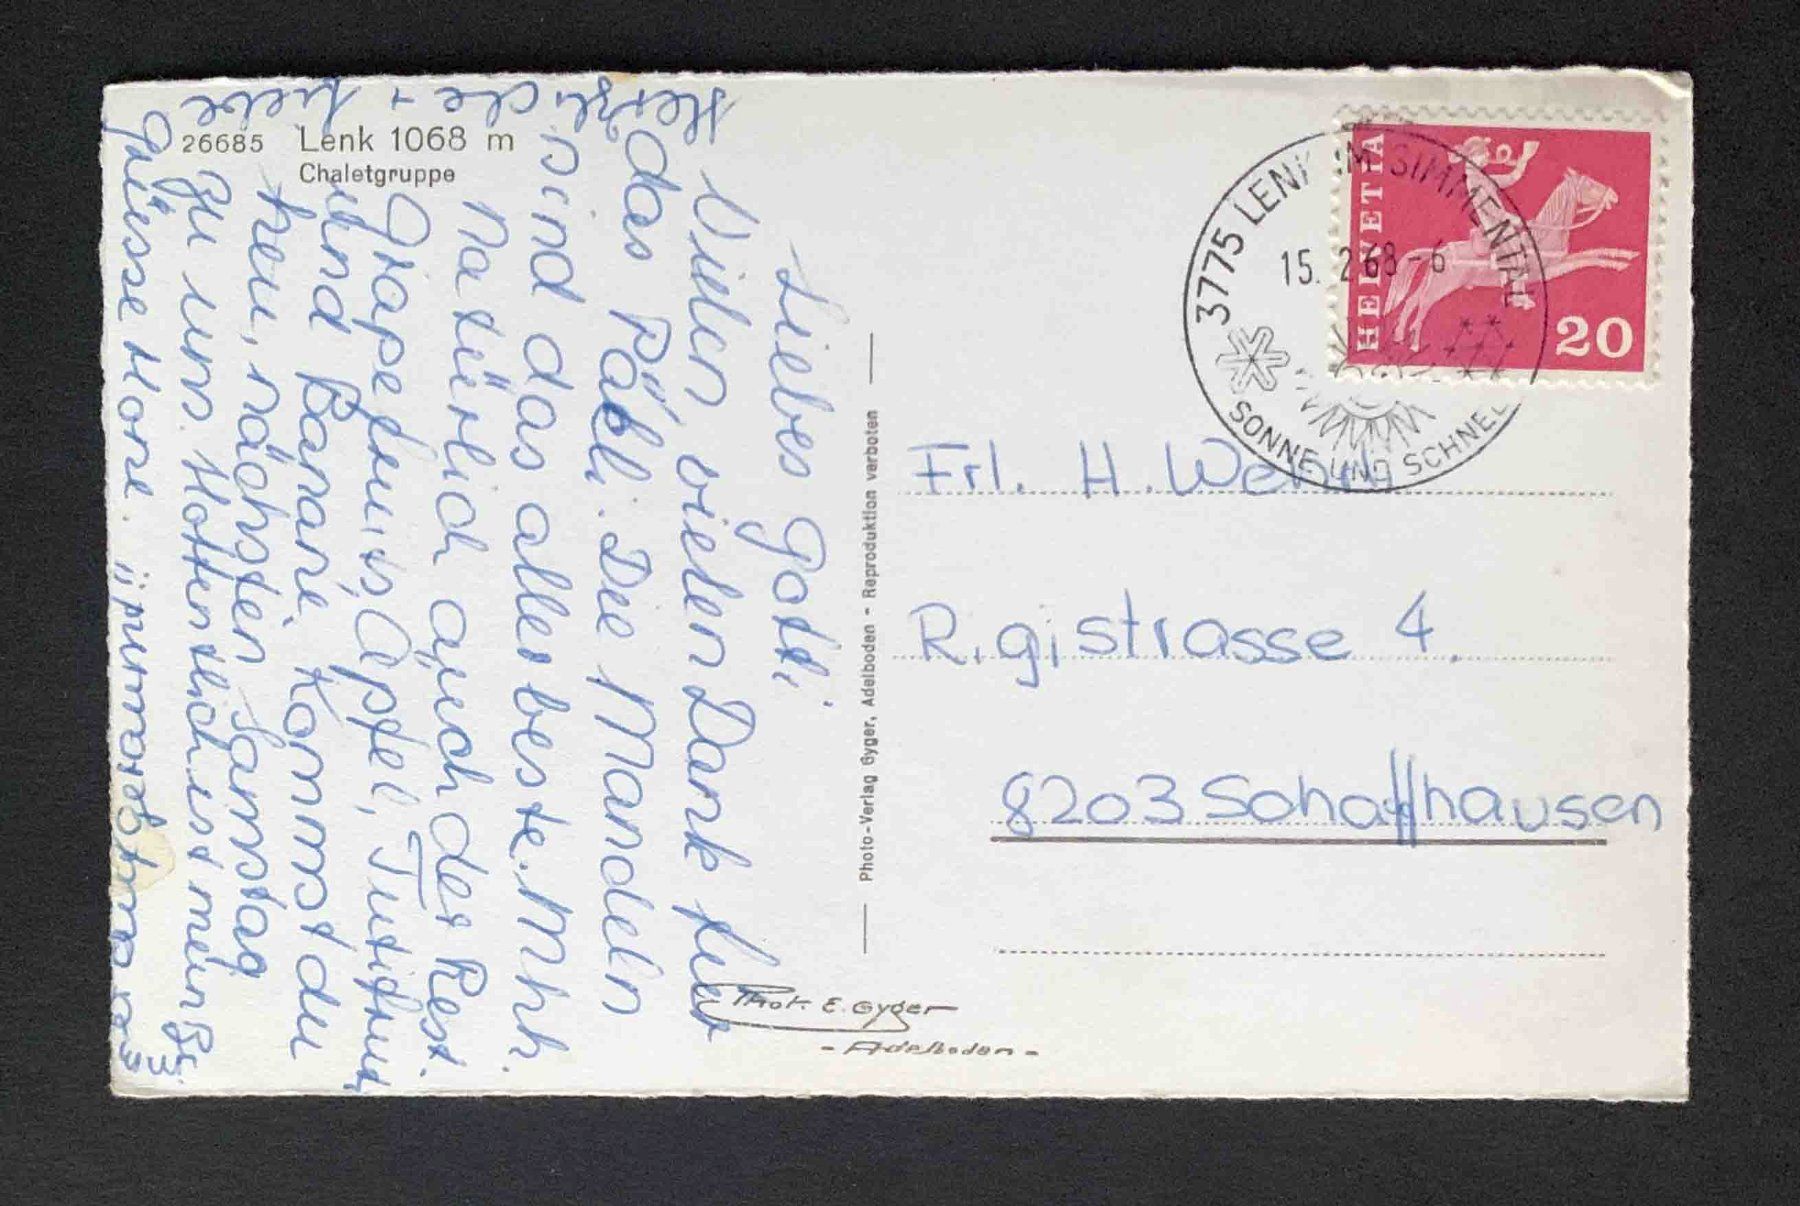 26685 Lenk 1068 m
Chaletgruppe
Liebes Gotti
Vielen, vielen Dank für
das Päckli. Die Mandeln
sind das aller beste. Mhh.
Natürlich auch der Rest.
Grapefruits, Äpfel, Tuttifrutti
und Banane. Kommst du
nächsten Samstag
zu uns. Hoffentlich ist mein
Herzliche + liebe
Grüsse
Photo-Verlag Gyger, Adelboden - Reproduktion verboten
Phot. E. Gyger
- Adelboden -
HELVETIA
20
3775 LENK IM SIMMENTAL
15. 2.68 -6
SONNE UND SCHNEE
Frl. H.
Rigistrasse 4.
8203 Schaffhausen